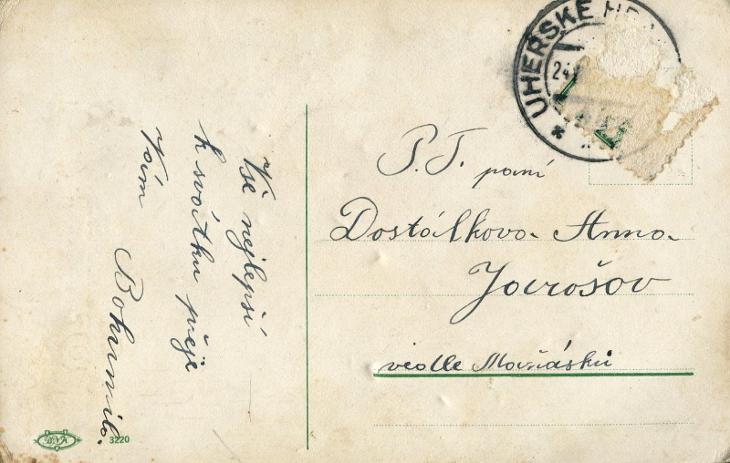 Vše nejlepší
k svátku přeje
Vám
Bohumila.
P. T. paní
Dostálkova Anna
Jarošov
vedle Maňásků
UHERSKÉ
24
3220